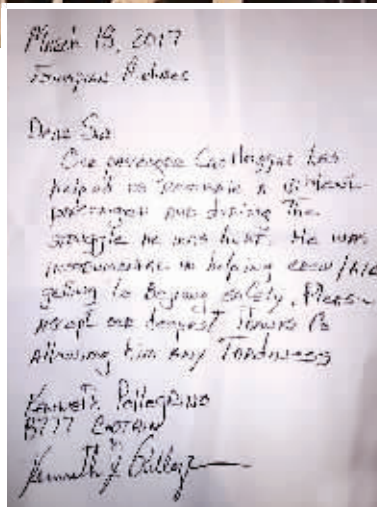 March 18, 2017
Dear Sir
One passenger has
helped us restrain a violent
passenger and during the
struggle he was hurt. He was
instrumental in helping crew /
getting to Beijing safely. Please
accept our deepest Thanks
Allowing him any Tardiness
Kenneth Pellegrino
B777 Captain
Kenneth J